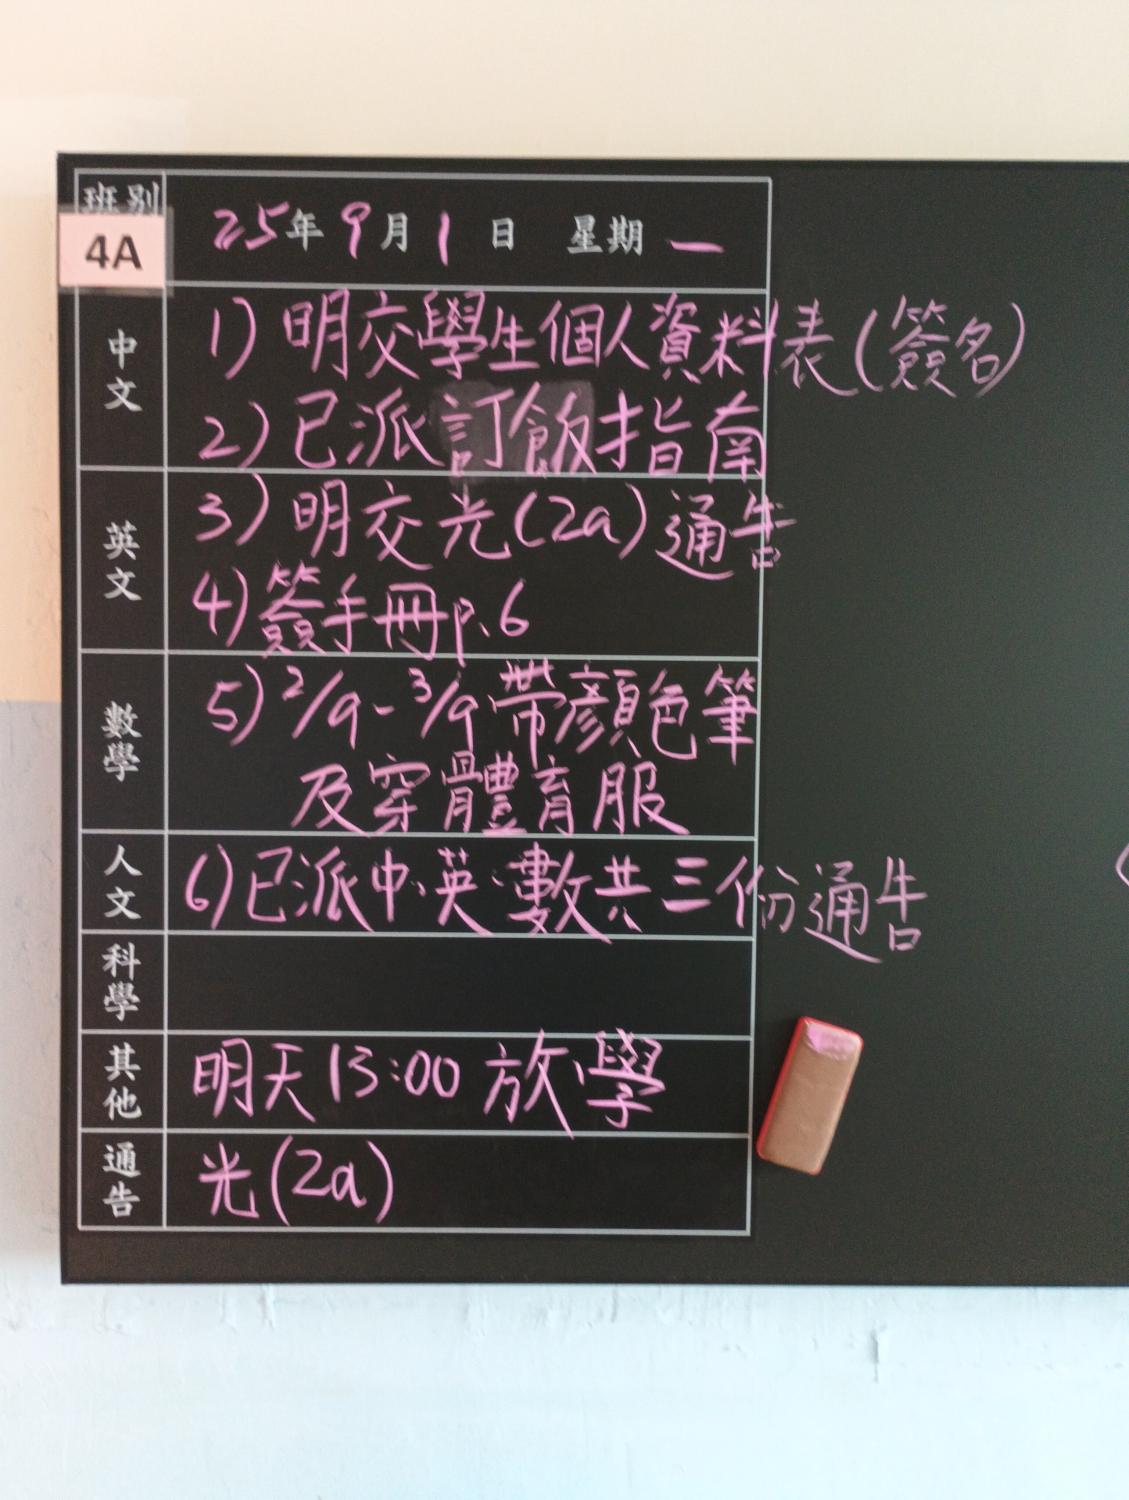 班別
4A
25年9月1日 星期一
中文
1) 明交學生個人資料表(簽名)
2) 已派訂飯指南
英文
3) 明交光(2a)通告
4) 簽手冊p.6
數學
5) 2/9-3/9帶顏色筆
及穿體育服
人文
6) 已派中、英、數共三份通告
科學
其他
明天13:00 放學
通告
光(2a)